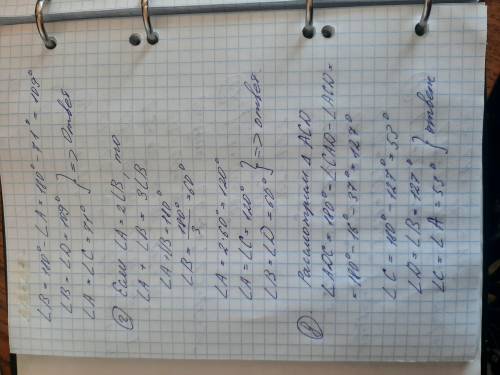 ∠B = 180° - ∠A = 180° - 71° = 109°
∠B = ∠D = 109°
∠A = ∠C = 71° } => ответ
② Если ∠A = 2∠B, то
∠A + ∠B = 3∠B
∠A + ∠B = 180°
∠B = 180°/3 = 60°
∠A = 2·60° = 120°
∠A = ∠C = 120°
∠B = ∠D = 60° } => ответ
Рассмотрим Δ ACD
∠ADC = 180° - ∠CAD - ∠ACD =
= 180° - 16° - 37° = 127°
∠C = 180° - 127° = 53°
∠D = ∠B = 127°
∠C = ∠A = 53° } ответ